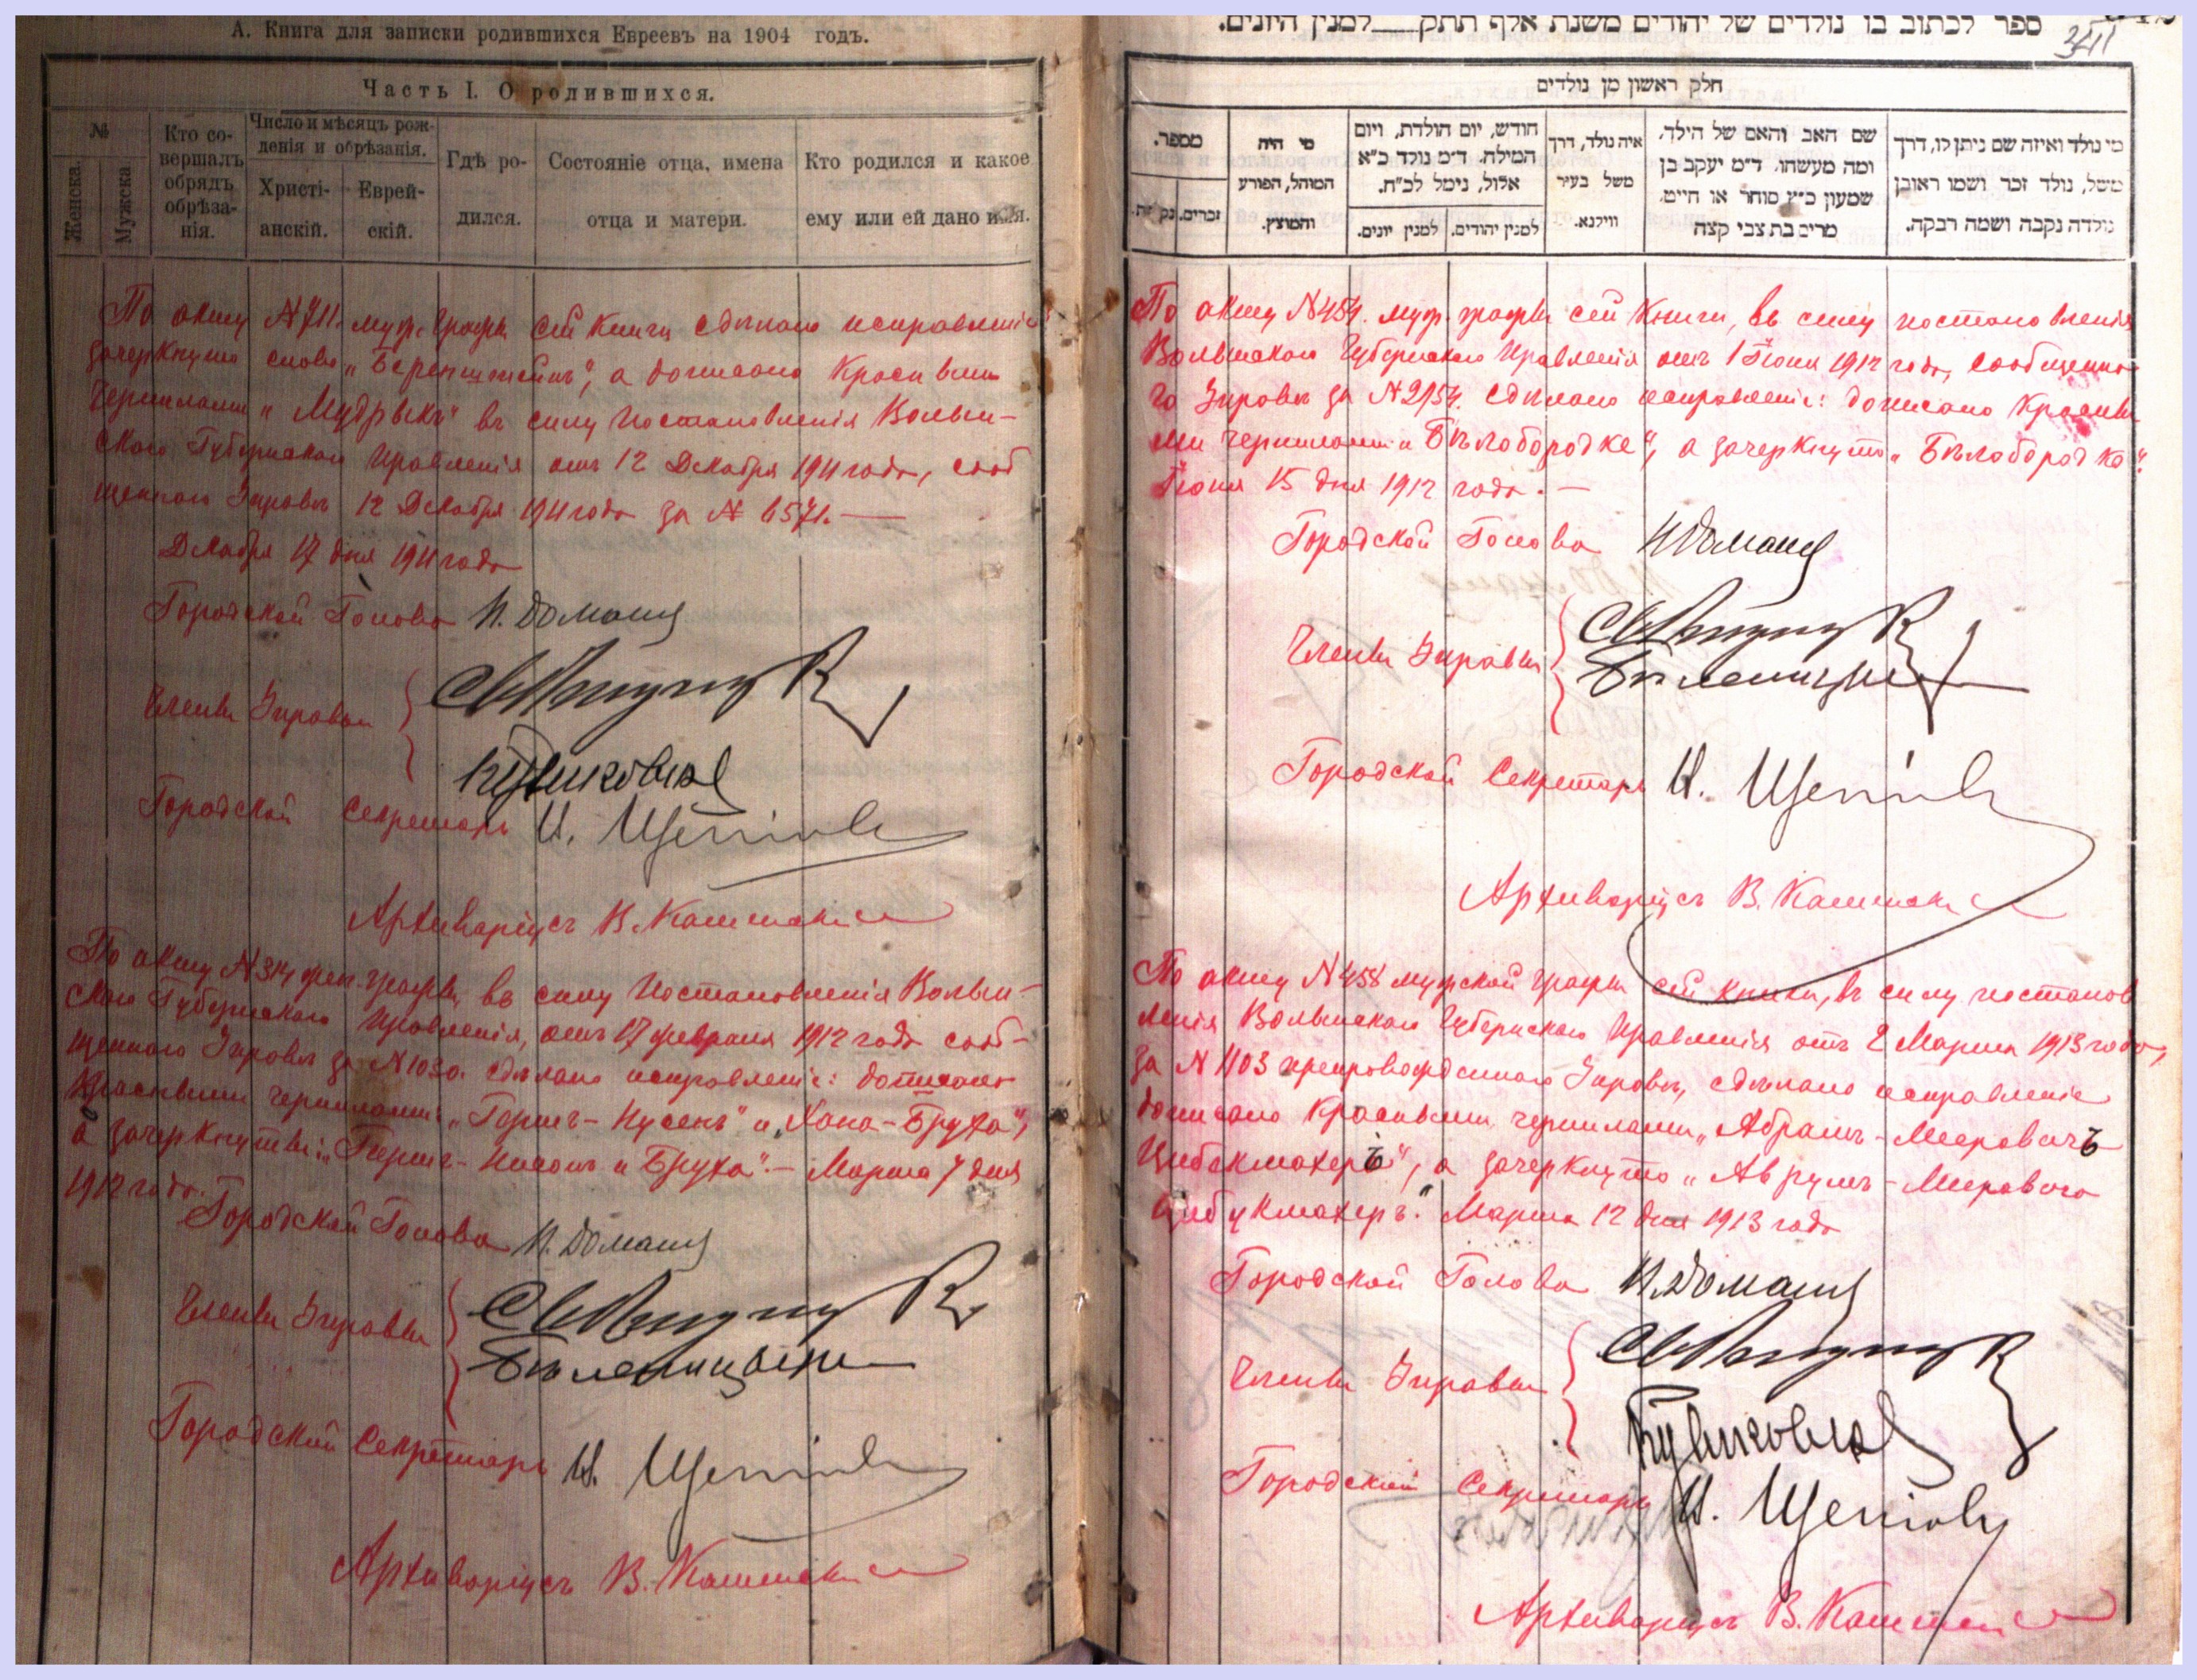 А. Книга для записки родившихся Евреевъ на 1904 годъ.
Часть I. О родившихся.
№
Женска.
Мужска
Кто со-
вершалъ
обрядъ
обрѣза-
нія.
Число и мѣсяцъ рож-
денія и обрѣзанія.
Христі-
анскій.
Еврей-
скій.
Гдѣ ро-
дился.
Состояніе отца, имена
отца и матери.
Кто родился и какое
ему или ей дано имя.
По акту №711. муж. графы сей книги сдѣлано исправленіе:
зачеркнуто слово „Беренштейнъ", а дописано красными
чернилами „Мудрыкъ" въ силу постановленія Волын-
скаго Губернскаго Правленія отъ 12 Декабря 1911 года, сооб
щеннаго Управѣ 12 Декабря 1911 года за № 6571.—
Декабря 17 дня 1911 года
Городской Голова И. Доманд
Члены Управы
Городской Секретарь И.
Архиваріусъ В.
По акту №314 жен. графы, въ силу Постановленія Волын-
скаго Губернскаго Правленія, отъ 17 февраля 1912 года сооб-
щеннаго Управѣ за №1030. сдѣлано исправленіе: дописано
красными чернилами: „Гершъ-Нусенъ" и „Хана-Бруха",
а зачеркнуты: „Гершъ-Нисонъ и Бруха".— Марта 7 дня
1912 года.
Городской Голова И. Доманд
Члены Управы
Городской Секретарь И.
Архиваріусъ В.
ספר לכתוב בו נולדים של יהודים משנת אלף תתק למנין היונים.
חלק ראשון מן נולדים
מספר.
זכרים.
מי היה
המוהל, הפורע
והמוצץ.
חודש, יום הולדת, ויום
המילה. ד״מ נולד כ״א
אלול, נימל לכ״ח.
למנין יונים.
למנין יהודים.
איה נולד, דרך
משל בעיר
ווילנא.
שם האב והאם של הילד,
ומה מעשהו. ד״מ יעקב בן
שמעון כ״ץ סוחר או חייט,
מרים בת צבי קצה
מי נולד ואיזה שם ניתן לו, דרך
משל, נולד זכר ושמו ראובן
נולדה נקבה ושמה רבקה.
По акту №454. муж. графы сей книги, въ силу постановленія
Волынскаго Губернскаго Правленія отъ 1 Іюня 1912 года, сообщенна-
го Управѣ за №2154. сдѣлано исправленіе: дописано красны
ми чернилами „Бѣлобородке", а зачеркнуто „Бѣлобородко".
Іюня 15 дня 1912 года.—
Городской Голова И Доманд
Члены Управы
Городской Секретарь И.
Архиваріусъ В.
По акту №458 мужской графы сей книги, въ силу постанов
ленія Волынскаго Губернскаго Правленія отъ 2 Марта 1913 года,
за № 1103 препровожденнаго Управѣ, сдѣлано исправленіе
дописано красными чернилами „Абрамъ-Меировичъ
Цибекмахеръ", а зачеркнуто „Аврумъ-Мерового
Цибукмахеръ." Марта 12 дня 1913 года
Городской Голова И. Доманд
Члены Управы
Городской Секретарь И.
Архиваріусъ В.